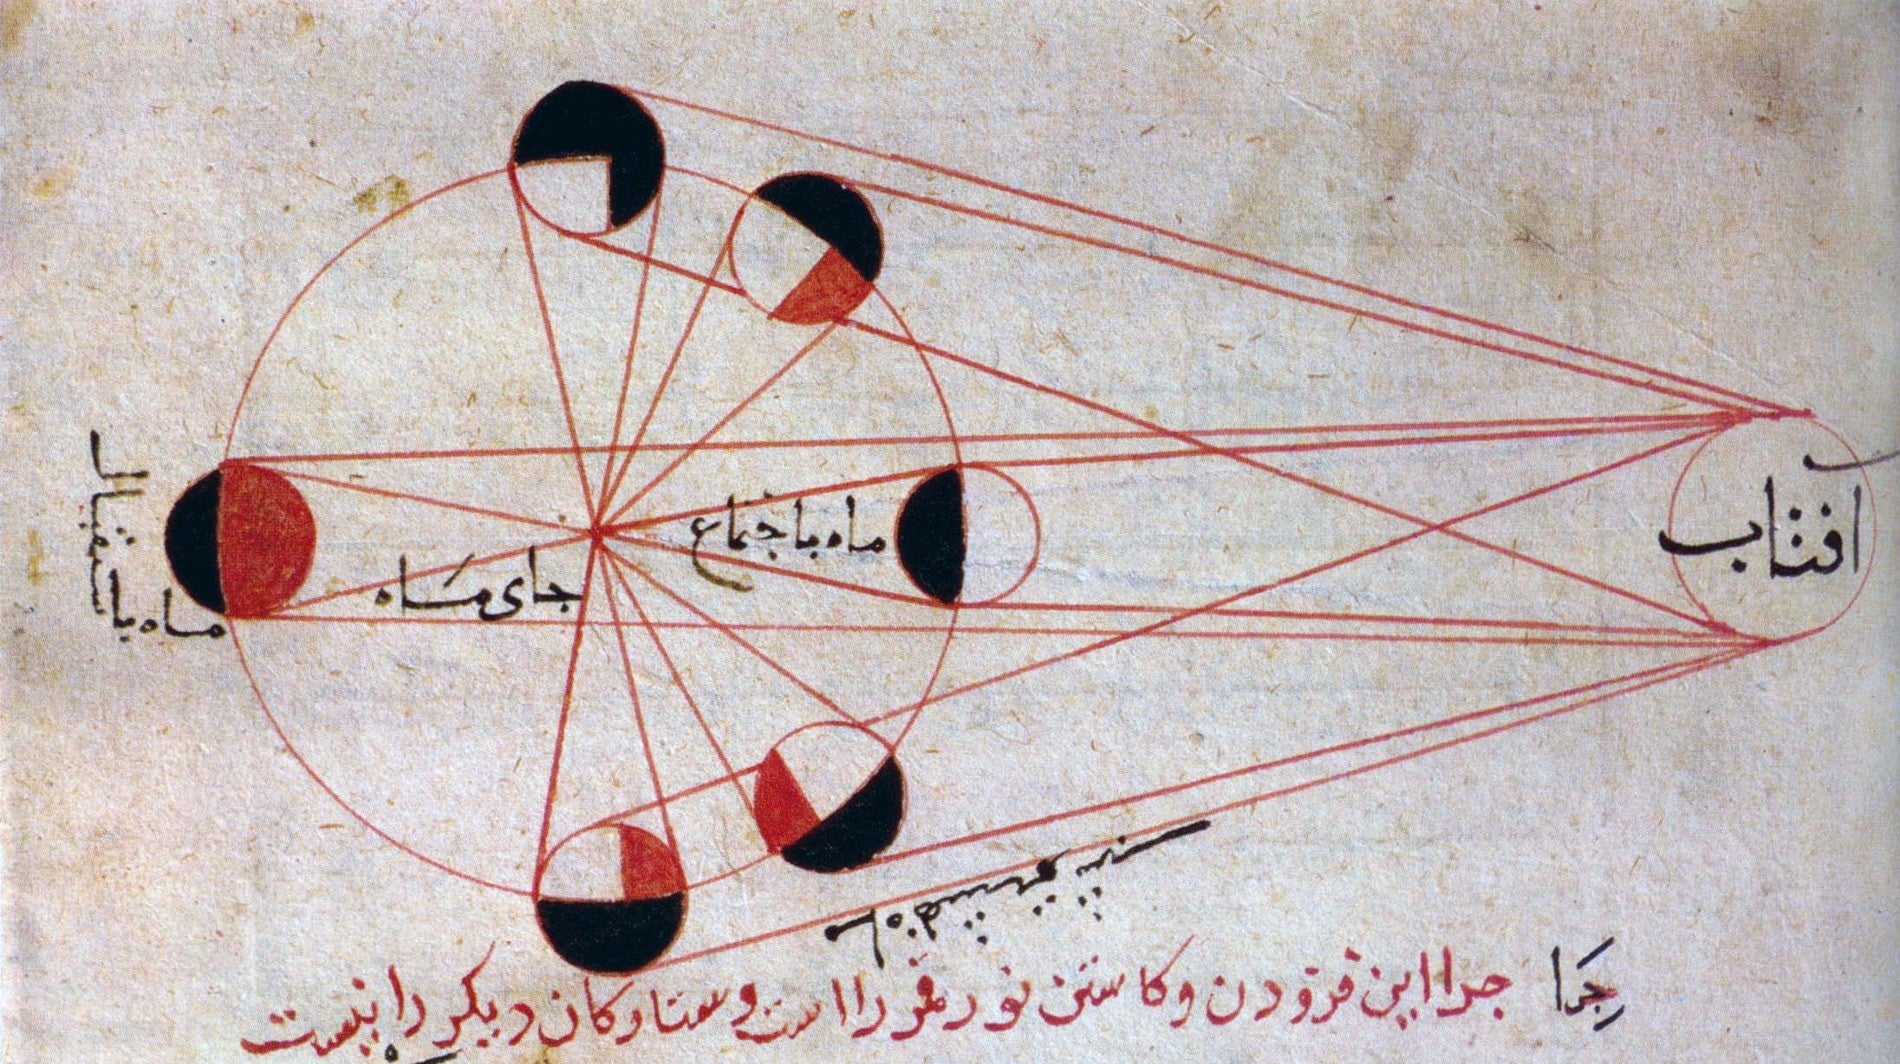 افتاب
ماه باجتماع
جای ماه
ماه باستقبال
جرا جرا این فزودن و کاستن نور قمر را است و ستارکان دیکر را نیست